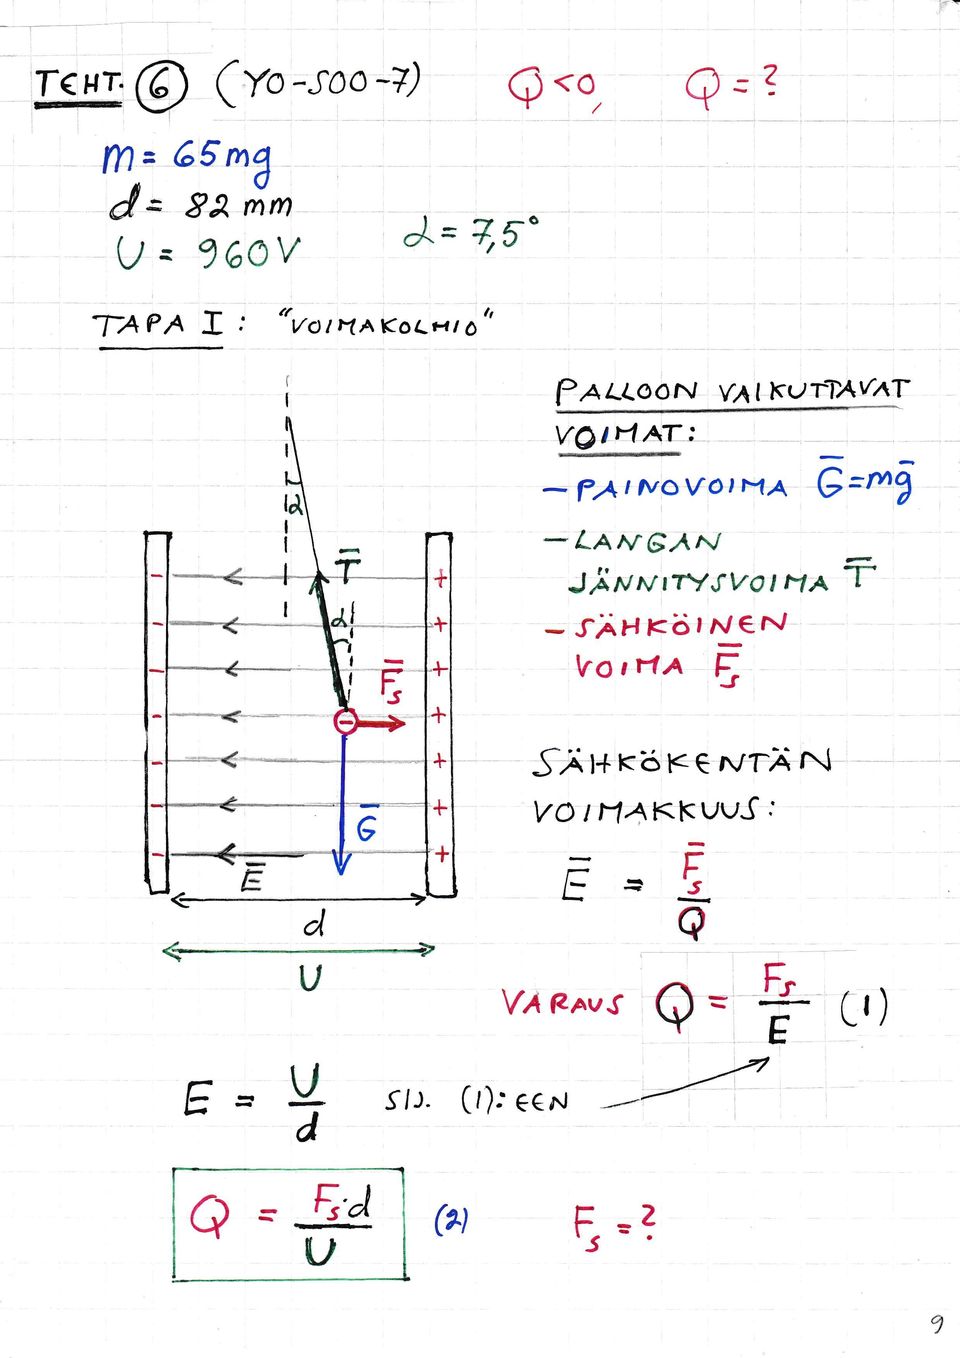 TEHT. 6 (YO-S00-7) Q<0, Q = ?
m = 65 mg
d = 82 mm
U = 960V α = 7,5°
TAPA I : "VOIMAKOLMIO"
PALLOON VAIKUTTAVAT
VOIMAT:
– PAINOVOIMA G̅ = mg̅
– LANGAN
JÄNNITYSVOIMA T̅
– SÄHKÖINEN
VOIMA F̅s
α
T̅
α
F̅s
G̅
E̅
d
U
SÄHKÖKENTÄN
VOIMAKKUUS:
E̅ = F̅s / Q
VARAUS Q = Fs / E (1)
E = U / d SIJ. (1):EEN
Q = Fs·d / U (2) Fs = ?
9